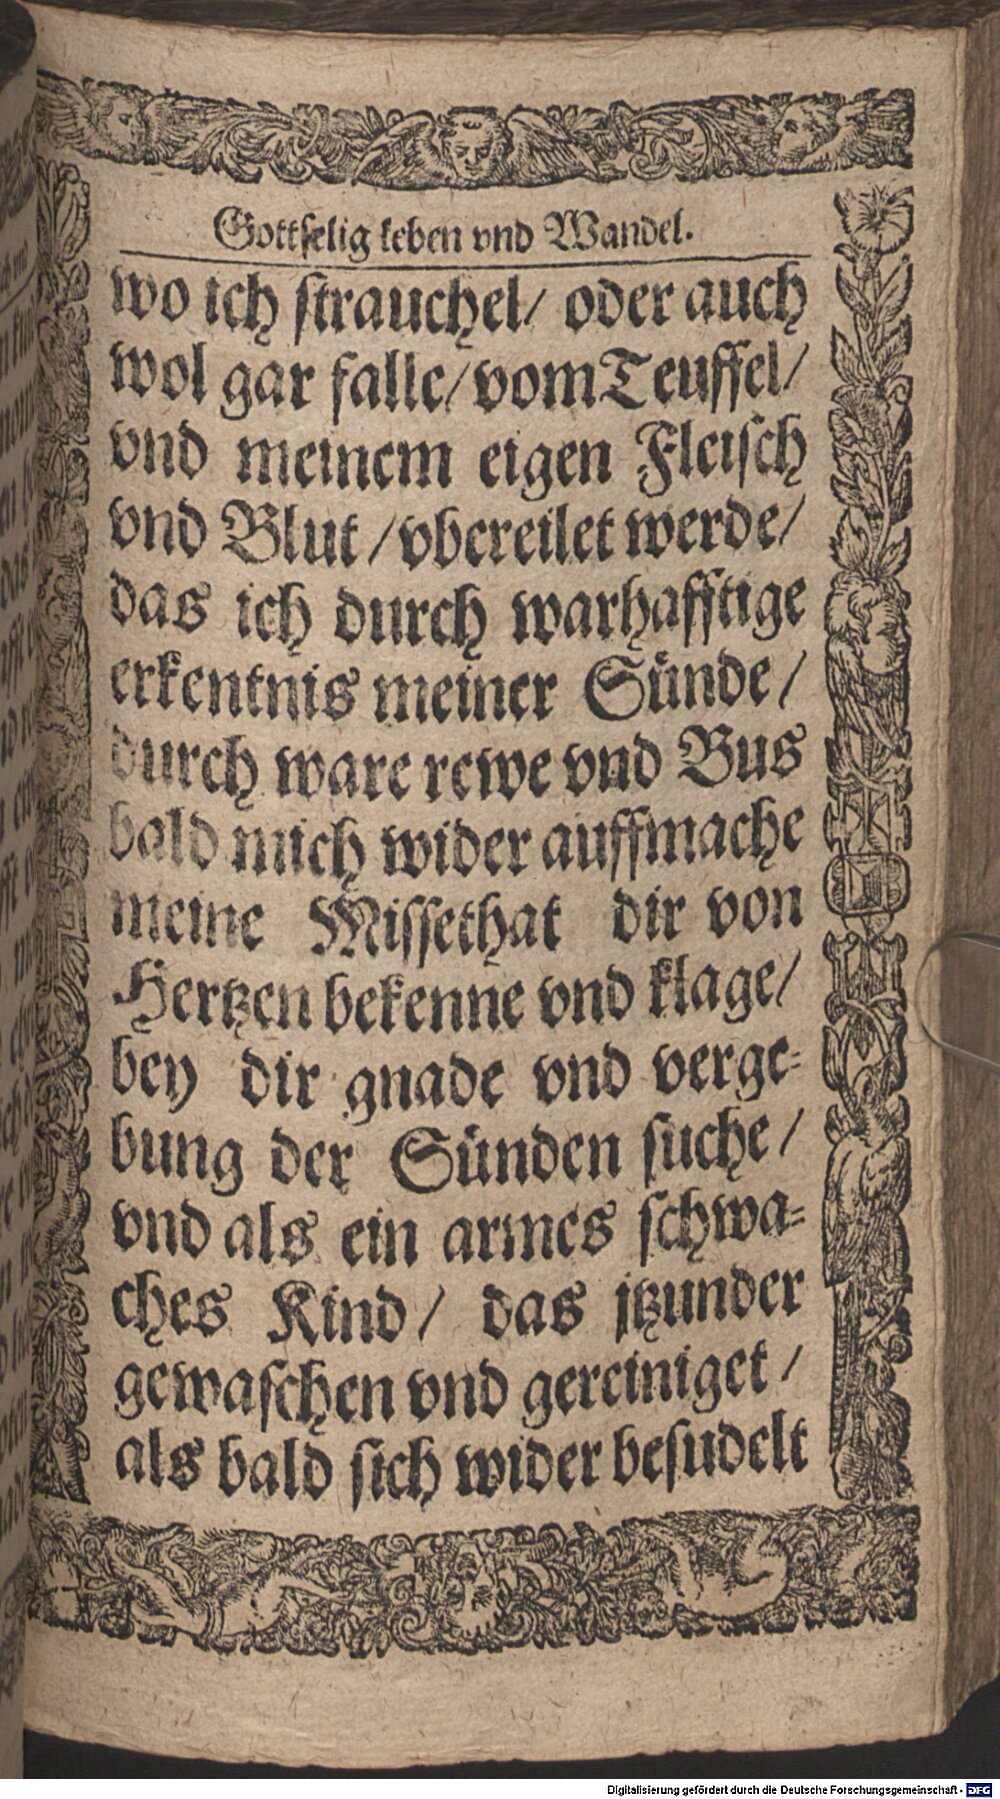 Gottselig leben vnd Wandel.
wo ich strauchel/ oder auch
wol gar falle/ vom Teuffel/
vnd meinem eigen Fleisch
vnd Blut/ vbereilet werde/
das ich durch warhafftige
erkentnis meiner Sünde/
durch ware rewe vnd Bus
bald mich wider auffmache
meine Missethat dir von
Hertzen bekenne vnd klage/
bey dir gnade vnd verge-
bung der Sünden suche/
vnd als ein armes schwa-
ches Kind/ das jtzunder
gewaschen vnd gereiniget/
als bald sich wider besudelt
Digitalisierung gefördert durch die Deutsche Forschungsgemeinschaft - DFG